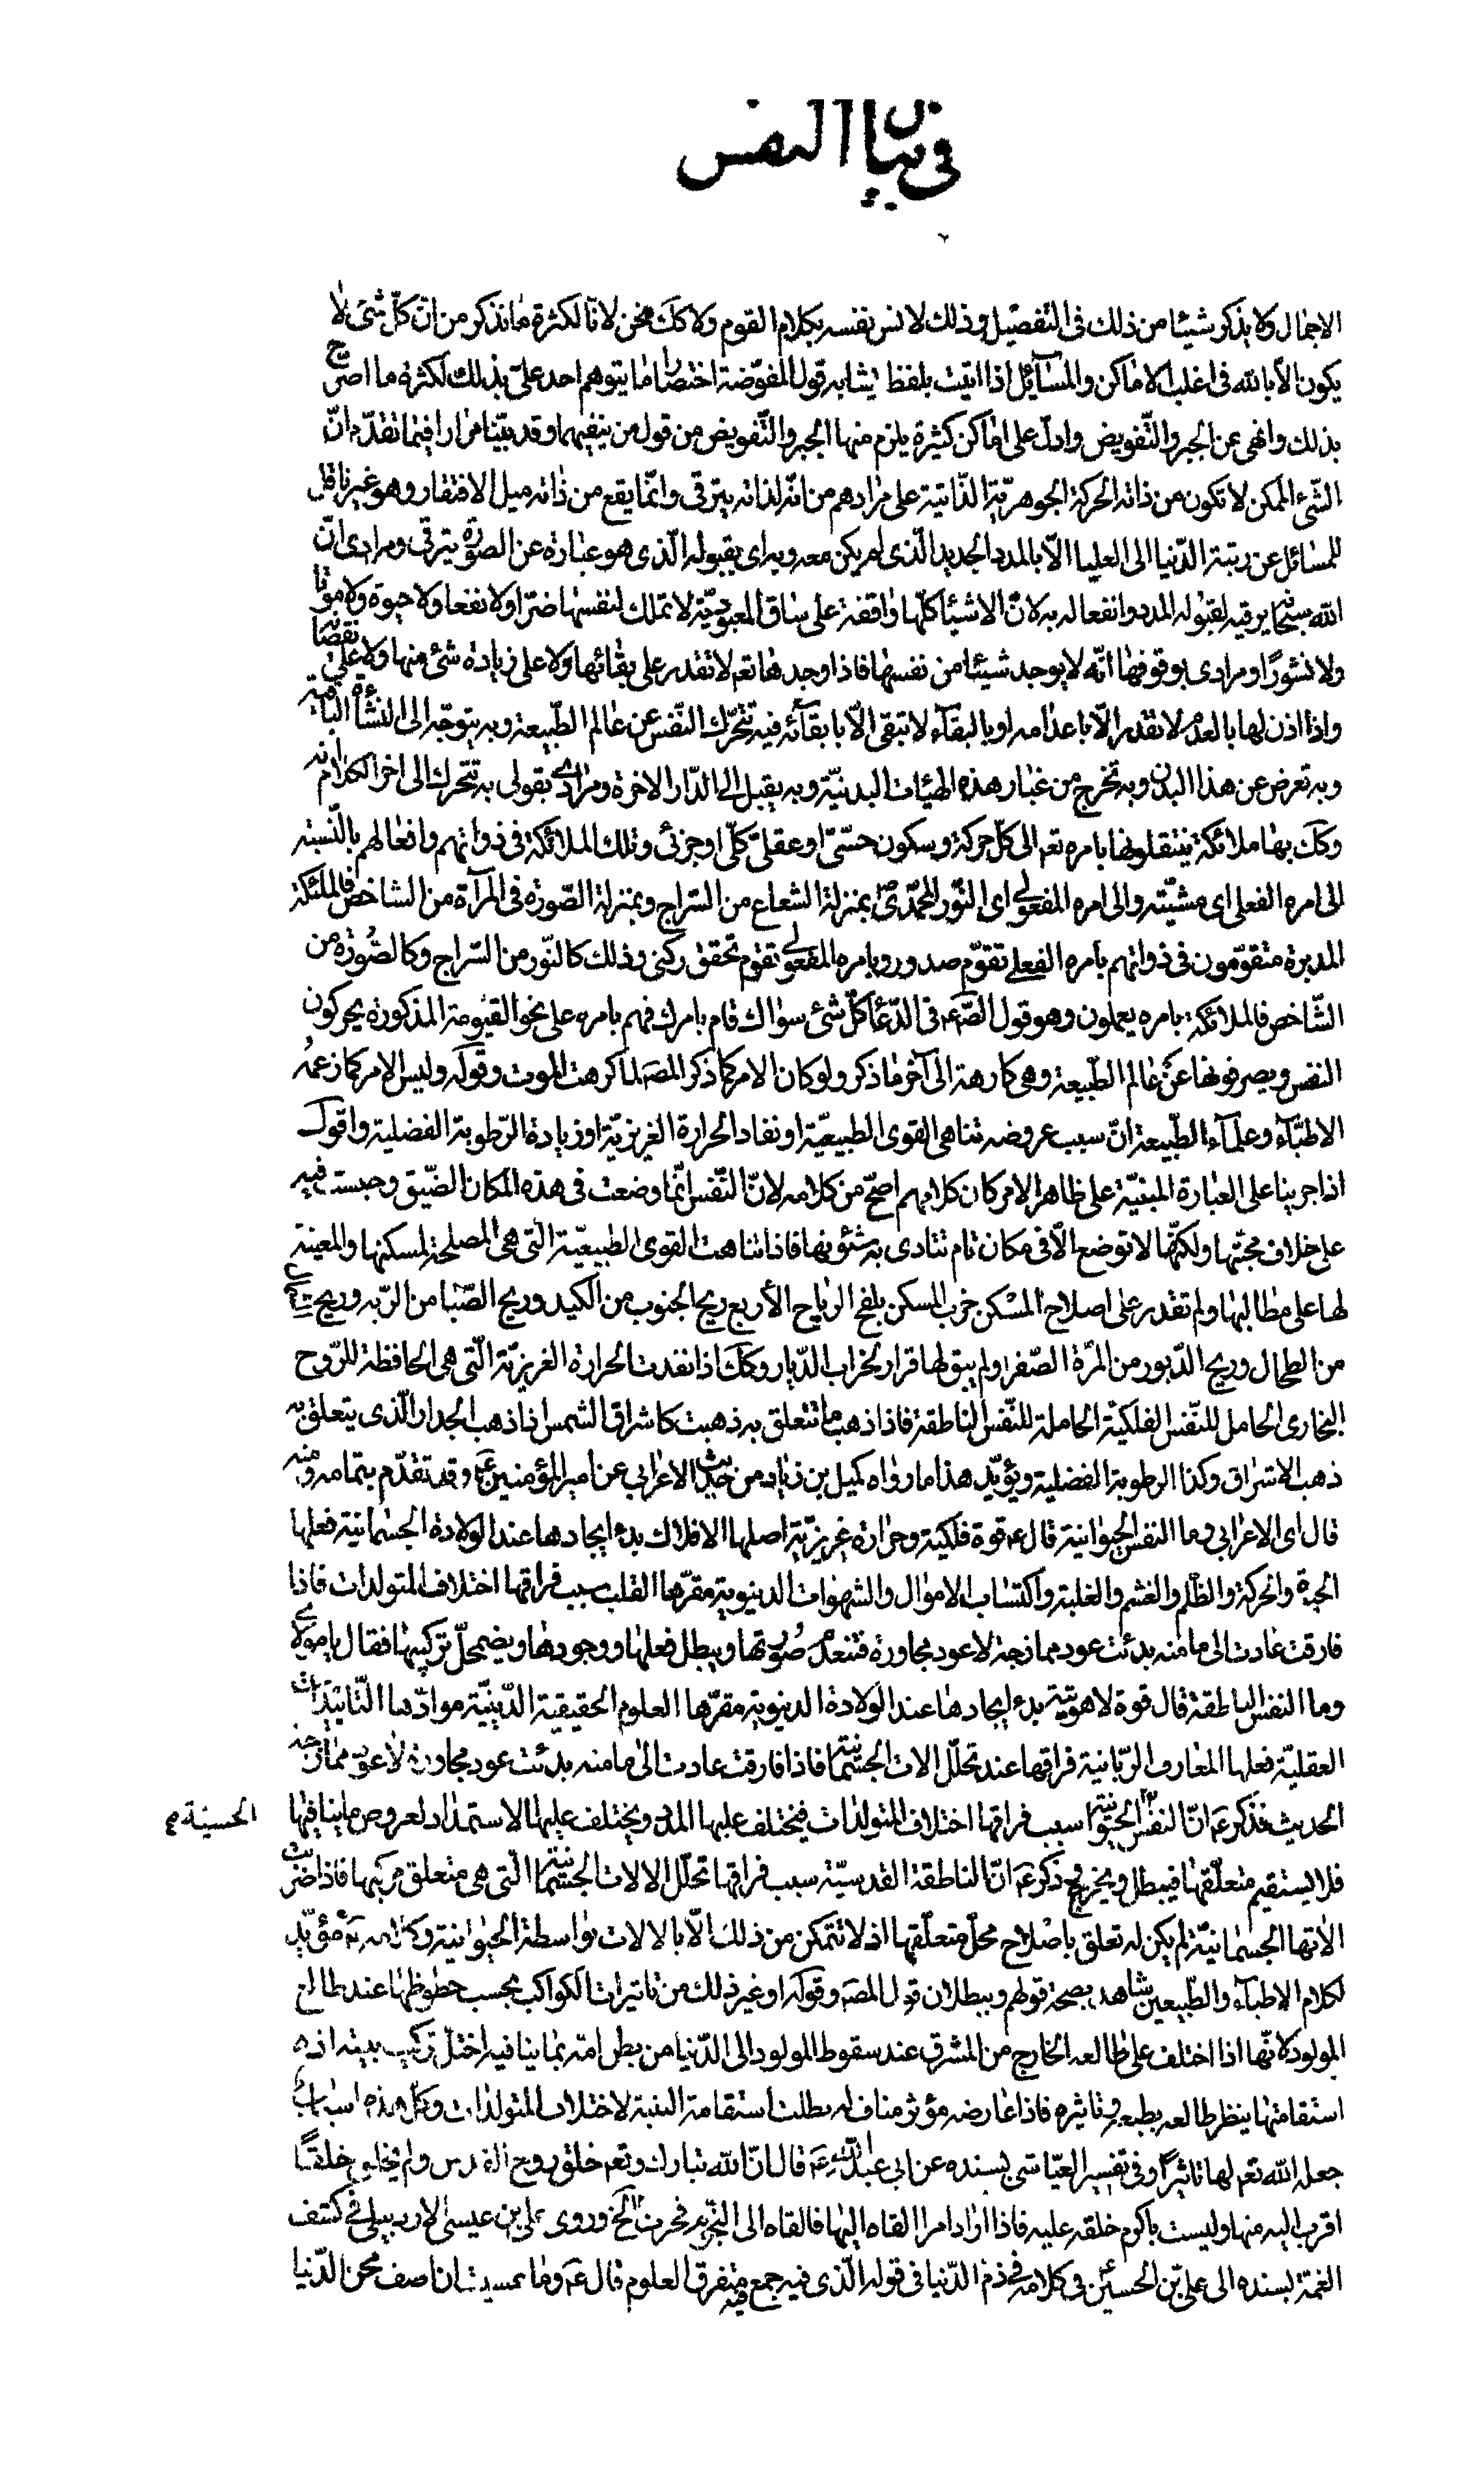 في بيان النفس
٢
الاجمال ولا يذكر شيئا من ذلك فى التفصيل وذلك لانس نفسه بكلام القوم ولا كك نحن لانا لكثرة ما نذكر من ان كلّ شئ لا
يكون الا بالله فى اغلب الاماكن والمسآئل اذا اتيت بلفظ يشابه قول المفوّضة اختصارا ما يتوهم احد علىّ بذلك لكثرة ما اصرح
بذلك وانهى عن الجبر والتّفويض وادلّ على اماكن كثيرة يلزم منها الجبر والتّفويض من قول من ينفيهما وقد بيّنا مرارا فيما تقدّم انّ
الشّئ الممكن لا تكون من ذاته الحركة الجوهريّة الذّاتية على مرادهم من انّه لذاته يترقى وانّما يقع من ذاته ميل الافتقار وهو غير ناقل
للسائل عن رتبة الدّنيا الى العليا الاّ بالمدد الجديد الّذى لم يكن معه وبه اى بقبوله الّذى هو عبارة عن الصورة يترقى ومرادى انّ
الله سبحانه يرقيه لقبوله المدد وانفعاله به لانّ الاشيآء كلّها واقفة على ساق العبوديّة لا تملك لنفسها ضرّا ولا نفعا ولا حيوة ولا موتا
ولا نشورًا ومرادى بوقوفها انّه لا يوجد شيئا من نفسها فاذا اوجدها تعم لا تقدر على بقائها ولا على زيادة شئ منها ولا على نقصانه
واذا اذن لها بالعدم لا تقدر الاّ باعدامه او بالبقآء لا تبقى الاّ بابقآئه فيه تتحرّك النّفس عن عالم الطّبيعة وبه يتوجّه الى النشأة الباقية
وبه تعرض عن هذا البدن وبه تخرج من غبار هذه الهيئات البدنيّة وبه يقبل الى الدّار الاخرة ومرادى بقولى به تتحرك الى اخر الكلام انه
وكّل بها ملائكة ينتقلونها بامره تعم الى كلّ حركة وسكون حسّىّ او عقلىّ كلّى او جزئى وتلك الملائكة فى ذواتهم وافعالهم بالنّسبة
الى امره الفعلى اى مشيّته والى امره المفعولى اى النّور المحمّدى ص بمنزلة الشعاع من السّراج وبمنزلة الصّورة فى المرآة من الشاخص فالملئكة
المدبرة متقوّمون فى ذواتهم بامره الفعلى تقوّم صدور وبامره المفعولى تقوم تحقق ركنى وذلك كالنّور من السّراج وكالصُورة من
الشّاخص فالملائكة بامره يعملون وهو قول الصّ عم فى الدّعآ كلّ شئ سواك قام بامرك فهم بامره على نحو القيومية المذكورة يحركون
النفس ويصرفونها عن عالم الطّبيعة وهى كارهة الى آخر ما ذكر ولو كان الامر كما ذكر المصَ لما كرهت الموت وقوله وليس الامر كما زعمُه
الاطبّآء وعلمآء الطّبيعة انّ سبب عروضه تناهى القوى الطبيعيّة او نفاد الحرارة الغريزيّة او زيادة الرّطوبة الفضلية واقول
اذا جرينا على العبارة المبنيّة على ظاهر الامر كان كلامهم اصحّ من كلامه لانّ النّفس انّما وضعت فى هذه المكان الضّيق وحبست فيه
على خلاف محبّتها ولكنّها لا توضع الاّ فى مكان تام تتادى به شئونها فاذا تناهت القوى الطبيعيّة الّتى هى المصلحة لمسكنها والمعينة
لها على مطالبها ولم تقدر على اصلاح المسْكن خرب المسكن بلفح الرياح الأربع ريح الجنوب من الكبد وريح الصّبا من الرّيه وريح
من الطحال وريح الدّبور من المرّة الصّفرا ولم يبق لها قرار لخراب الدّيار وكك اذا نفدت الحرارة الغريزيّة الّتى هى الحافظة للرّوح
البخارى الحامل للنّفس الفلكيّة الحاملة للنّفس الناطقة فاذا ذهب ما تتعلق به ذهبت كاشراق الشمس اذا ذهب الجدار الّذى يتعلق به
ذهب الاشراق وكذا الرطوبة الفضلية ويؤيّد هذا ما رواه كميل بن زياد من حديث الاعرابى عن امير المؤمنين عم وقد تقدّم بتمامه ومنه
قال اى الاعرابى وما النفس الحيوانية قال عم قوة فلكية وحرارة غريزيّة اصلها الافلاك بدء ايجادها عند الولادة الجسمانية فعلها
الحيوة والحركة والظلم والغشم والغلبة واكتساب الاموال والشهوات الدنيوية مقرّها القلب سبب فراقها اختلاف المتولدات فاذا
فارقت عادت الى ما منه بدئت عود ممازجة لا عود مجاورة فتنعدم صُورتها ويبطل فعلها ووجودها ويضمحلّ تركيبها فقال يا مولاى
وما النفس الناطقة قال قوة لاهوتية بدء ايجادها عند الولادة الدنيوية مقرّها العلوم الحقيقية الدّينيّة موادّها التّاييدات
العقليّة فعلها المعارف الرّبانية فراقها عند تحلّل الالات الجسمانية فاذا فارقت عادت الى ما منه بدئت عود مجاورة لا عود ممازجة
الحديث فذكر عم انّ النفس الحيوانية سبب فراقها اختلاف المتولّدات فيختلف عليها المدد ويختلف عليها الاستمداد لعروض ما ينافيها
الحسينة ع
فلا يستقيم متعلّقها فيبطل ويخرج وذكر عم انّ الناطقة القدسيّة سبب فراقها تحلّل الالات الجسمانية الّتى هى متعلق مركبها فاذا اضرت
الاتها الجسمانيّة لم يكن له تعلق باصْلاح محلّ متعلّقها اذ لا تتمكن من ذلك الاّ بالالات بواسطة الحيوانية وكلامه عم مؤيّد
لكلام الاطبآء والطّبيعين شاهد بصحة قولهم وببطلان قول المصَ وقوله او غير ذلك من تاثيرات الكواكب بحسب حظوظها عند طالع
المولود لانّها اذا اختلف على طالعه الخارج من المشرق عند سقوط المولود الى الدّنيا من بطن امّه بما ينافيه اختلّ تركيب بنيته اذ
استقامتها ينظر طالعه بطبعه وتاثيره فاذا عارضه مؤثر مناف له بطلت استقامة البنية لاختلاف المتولدات وكلّ هذه اسباب
جعل الله تعم لها تاثيرًا وفى تفسير العيّاشى بسنده عن ابى عبد الله عم قال انّ الله تبارك وتعم خلق روح القدس ولم يخلق خلقًا
اقرب اليه منها وليست باكرم خلقه عليه فاذا اراد امرا القاه اليها فالقاه الى النّجوم فجرت الخ وروى على بن عيسى الاربيلى فى كشف
الغمّة بسنده الى علىّ بن الحسين فى كلامه فى ذم الدّنيا فى قوله الّذى فيه جمع فيه متفرق العلوم قال عم وما عسيت ان اصف محن الدّنيا